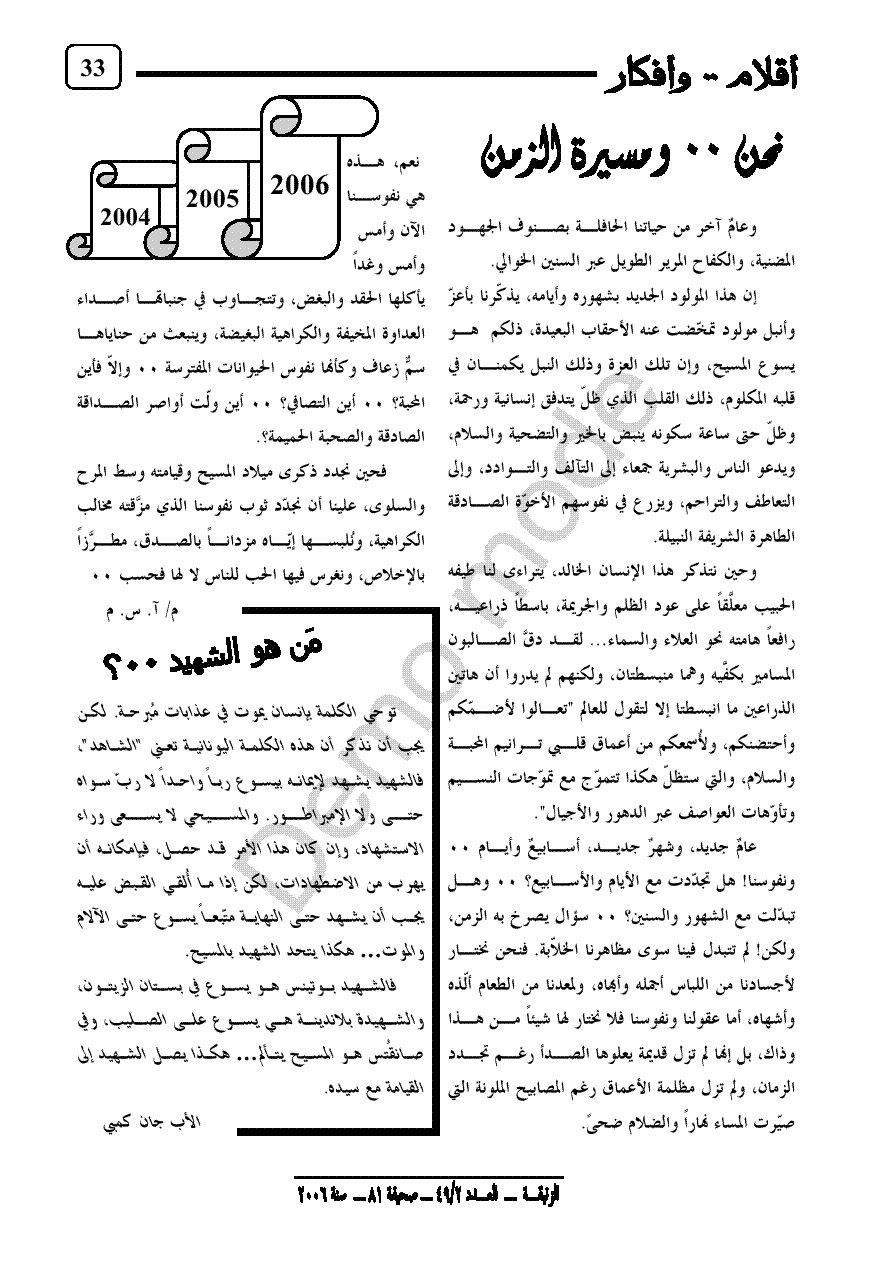 أقلام -- وأفكار
33
نحن ٠٠ ومسيرة الزمن
وعامٌ آخر من حياتنا الحافلة بصنوف الجهود
المضنية، والكفاح المرير الطويل عبر السنين الخوالي.
إن هذا المولود الجديد بشهوره وأيامه، يذكّرنا بأعزّ
وأنبل مولود تمخّضت عنه الأحقاب البعيدة، ذلكم هو
يسوع المسيح، وإن تلك العزة وذلك النبل يكمنان في
قلبه المكلوم، ذلك القلب الذي ظلّ يتدفق إنسانية ورحمة،
وظلّ حتى ساعة سكونه ينبض بالخير والتضحية والسلام،
ويدعو الناس والبشرية جمعاء إلى التآلف والتوادد، وإلى
التعاطف والتراحم، ويزرع في نفوسهم الأخوّة الصادقة
الطاهرة الشريفة النبيلة.
وحين نتذكر هذا الإنسان الخالد، يتراءى لنا طيفه
الحبيب معلّقاً على عود الظلم والجريمة، باسطاً ذراعيه،
رافعاً هامته نحو العلاء والسماء... لقد دقَّ الصالبون
المسامير بكفّيه وهما منبسطتان، ولكنهم لم يدروا أن هاتين
الذراعين ما انبسطتا إلا لتقول للعالم "تعالوا لأضمّكم
وأحتضنكم، ولأُسمعكم من أعماق قلبي ترانيم المحبة
والسلام، والتي ستظلّ هكذا تتموّج مع تموّجات النسيم
وتأوّهات العواصف عبر الدهور والأجيال".
عامٌ جديد، وشهرٌ جديد، أسابيعٌ وأيام ٠٠
ونفوسنا! هل تجدّدت مع الأيام والأسابيع؟ ٠٠ وهل
تبدّلت مع الشهور والسنين؟ ٠٠ سؤال يصرخ به الزمن،
ولكن! لم تتبدل فينا سوى مظاهرنا الخلاّبة. فنحن نختار
لأجسادنا من اللباس أجمله وأبهاه، ولمعدنا من الطعام ألّذه
وأشهاه، أما عقولنا ونفوسنا فلا نختار لها شيئاً من هذا
وذاك، بل إنها لم تزل قديمة يعلوها الصدأ رغم تجدد
الزمان، ولم تزل مظلمة الأعماق رغم المصابيح الملونة التي
صيّرت المساء نهاراً والضلام ضحىً.
2004
2005
2006
نعم، هذه
هي نفوسنا
الآن وأمس
وأمس وغداً
يأكلها الحقد والبغض، وتتجاوب في جنباتها أصداء
العداوة المخيفة والكراهية البغيضة، وينبعث من حناياها
سمٌّ زعاف وكأنها نفوس الحيوانات المفترسة ٠٠ وإلاّ فأين
المحبة؟ ٠٠ أين التصافي؟ ٠٠ أين ولّت أواصر الصداقة
الصادقة والصحبة الحميمة؟.
فحين نجدد ذكرى ميلاد المسيح وقيامته وسط المرح
والسلوى، علينا أن نجدّد ثوب نفوسنا الذي مزَّقته مخالب
الكراهية، ونُلبسها إيّاه مزداناً بالصدق، مطرَّزاً
بالإخلاص، ونغرس فيها الحب للناس لا لها فحسب ٠٠
م/ آ. س. م
مَن هو الشهيد ٠٠؟
توحي الكلمة بإنسان يموت في عذابات مُبرحة. لكن
يجب أن نذكر أن هذه الكلمة اليونانية تعني "الشاهد"،
فالشهيد يشهد لإيمانه بيسوع رباً واحداً لا ربّ سواه
حتى ولا الإمبراطور. والمسيحي لا يسعى وراء
الاستشهاد، وإن كان هذا الأمر قد حصل، فبإمكانه أن
يهرب من الاضطهادات، لكن إذا ما أُلقي القبض عليه
يجب أن يشهد حتى النهاية متّبعاً يسوع حتى الآلام
والموت... هكذا يتحد الشهيد بالمسيح.
فالشهيد بوتينس هو يسوع في بستان الزيتون،
والشهيدة بلاندينة هي يسوع على الصليب، وفي
صانقتُس هو المسيح يتألم... هكذا يصل الشهيد إلى
القيامة مع سيده.
الأب جان كمبي
الزنبقة ــ العدد ٤٩/٢ ــ صحيفة ٨١ ــ سنة ٢٠٠٦
Demo mode